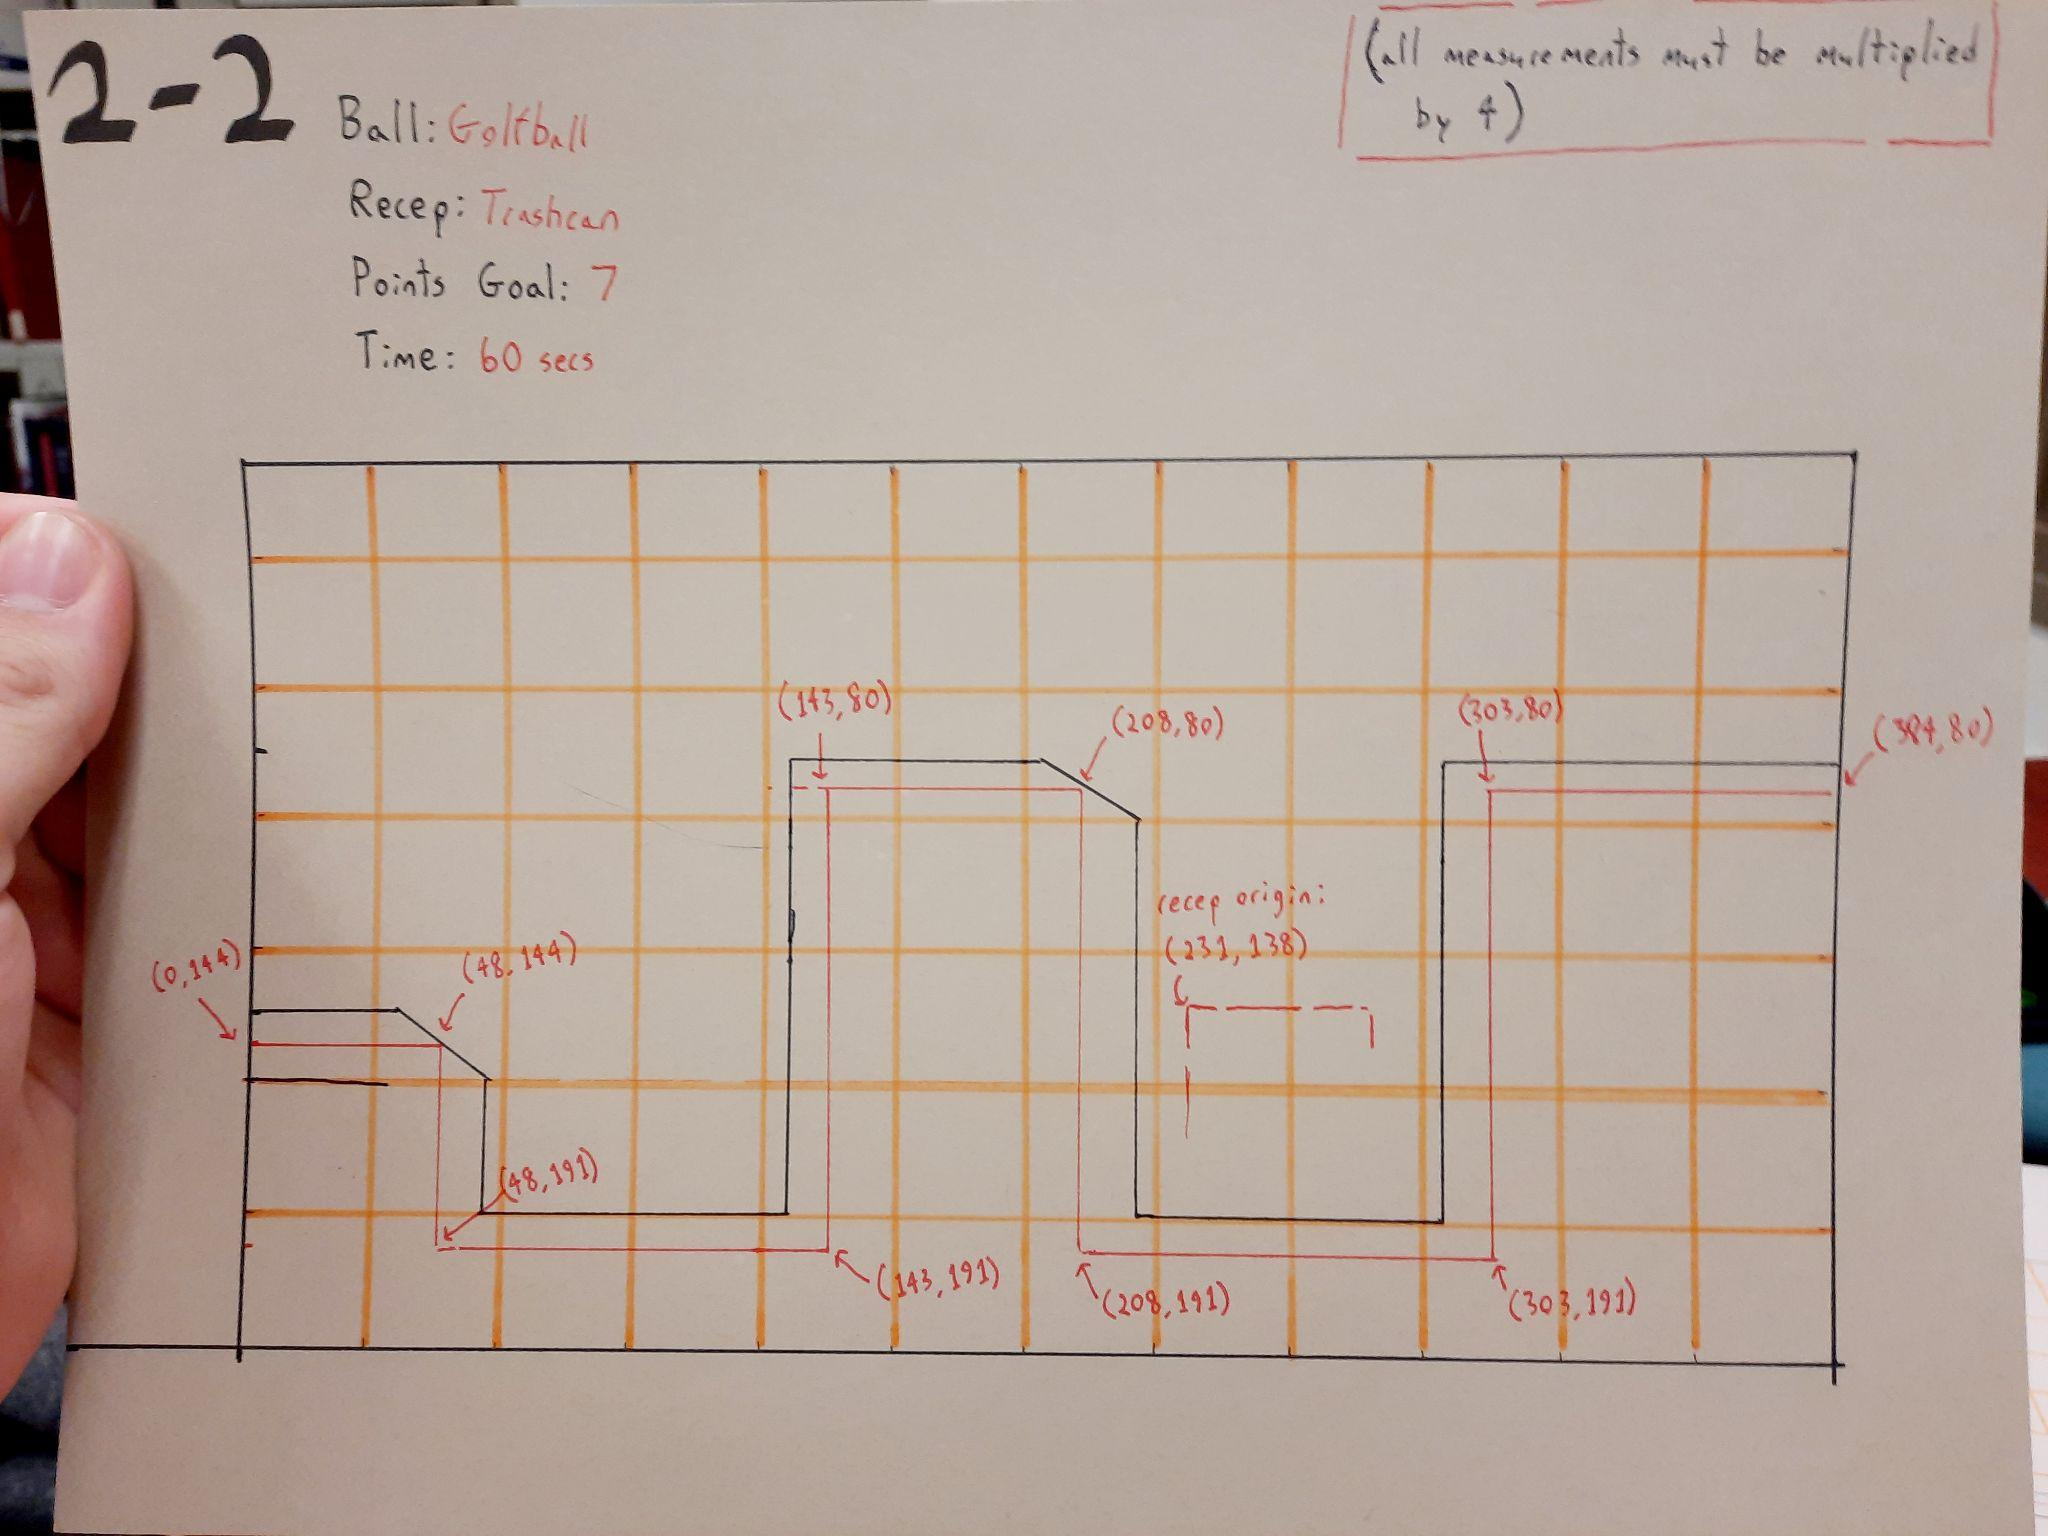 2-2
Ball: Golfball
Recep: Trashcan
Points Goal: 7
Time: 60 secs
(all measurements must be multiplied
by 4)
(143,80)
(208,80)
(303,80)
(384,80)
recep origin:
(231,138)
(0,144)
(48,144)
(48,191)
(143,191)
(208,191)
(303,191)